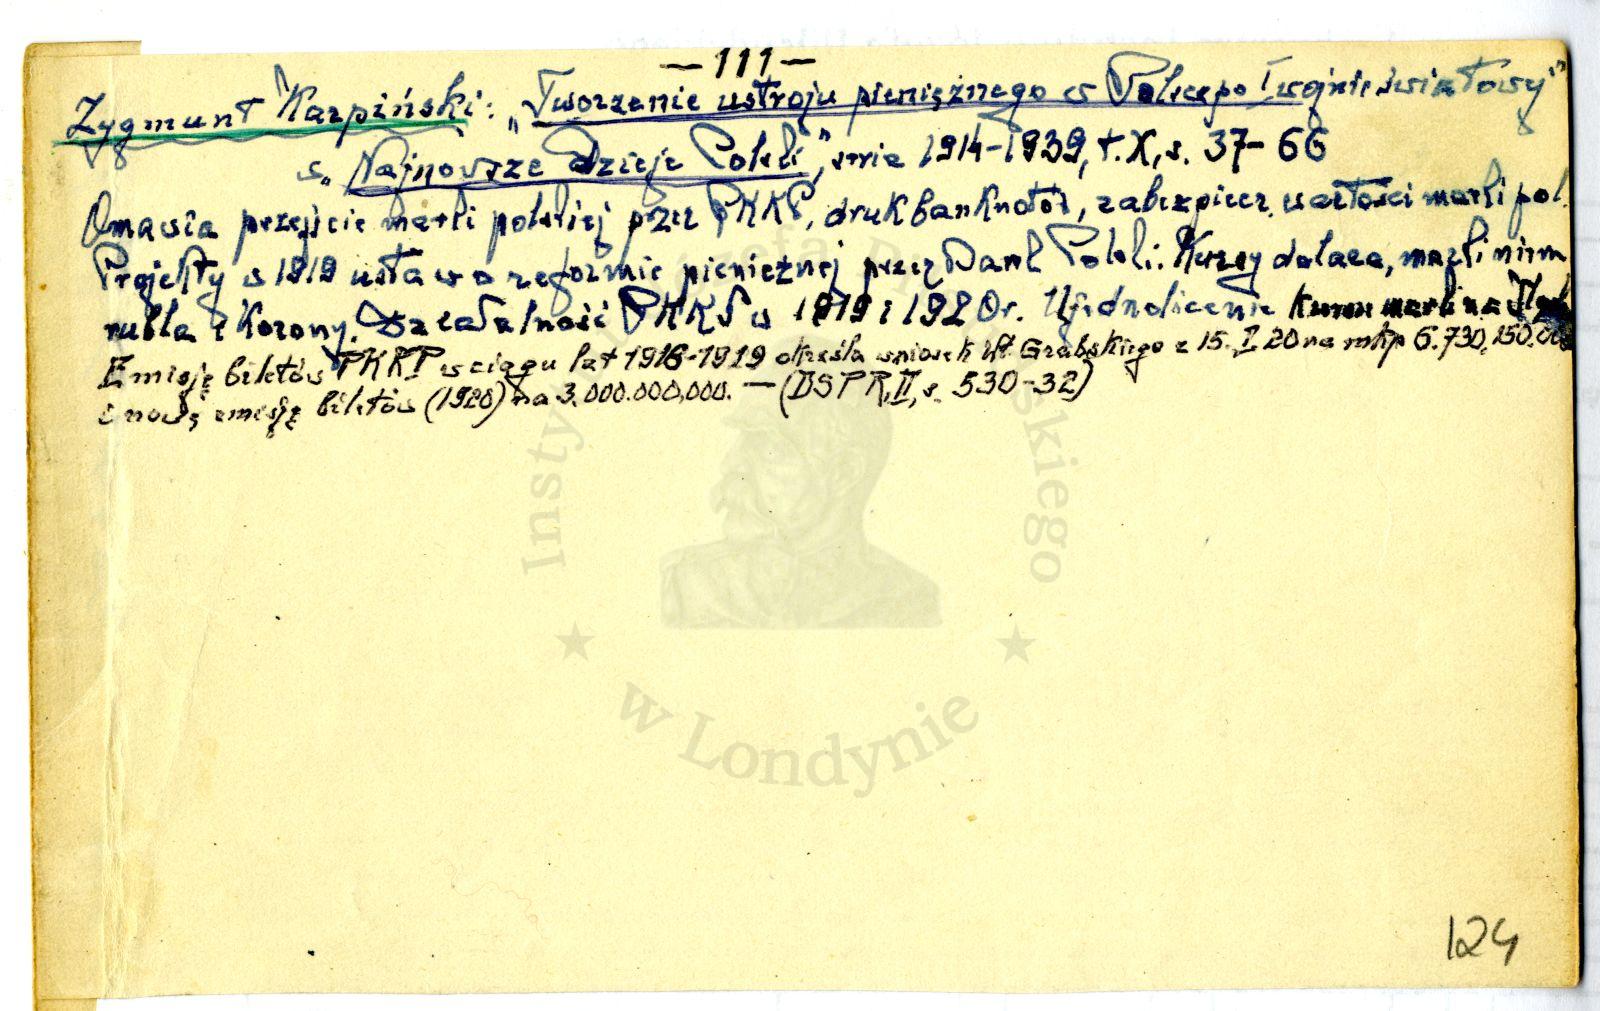 — 111 —
Zygmunt Karpiński: „Tworzenie ustroju pieniężnego w Polsce po I wojnie światowej"
w „Najnowsze dzieje Polski", seria 1914-1939, t. X, s. 37-66
Omawia przejęcie marki polskiej przez PKKP, druk banknotów, zabezpiecz. wartości marki pol.
Projekty w 1919 ustaw o reformie pieniężnej przez Bank Polski. Kursy dolara, marki niem
rubla i korony. Działalność PKKP w 1919 i 1920 r. Ujednolicenie kursu marki na
Emisję biletów PKKP w ciągu lat 1918-1919 określa wniosek Wł. Grabskiego z 15. I 20 na mkp 6.730,150.
i nową emisję biletów (1920) na 3.000.000,000. — (DSPR, II, s. 530-32)
Instytut Józefa Piłsudskiego
w Londynie
124